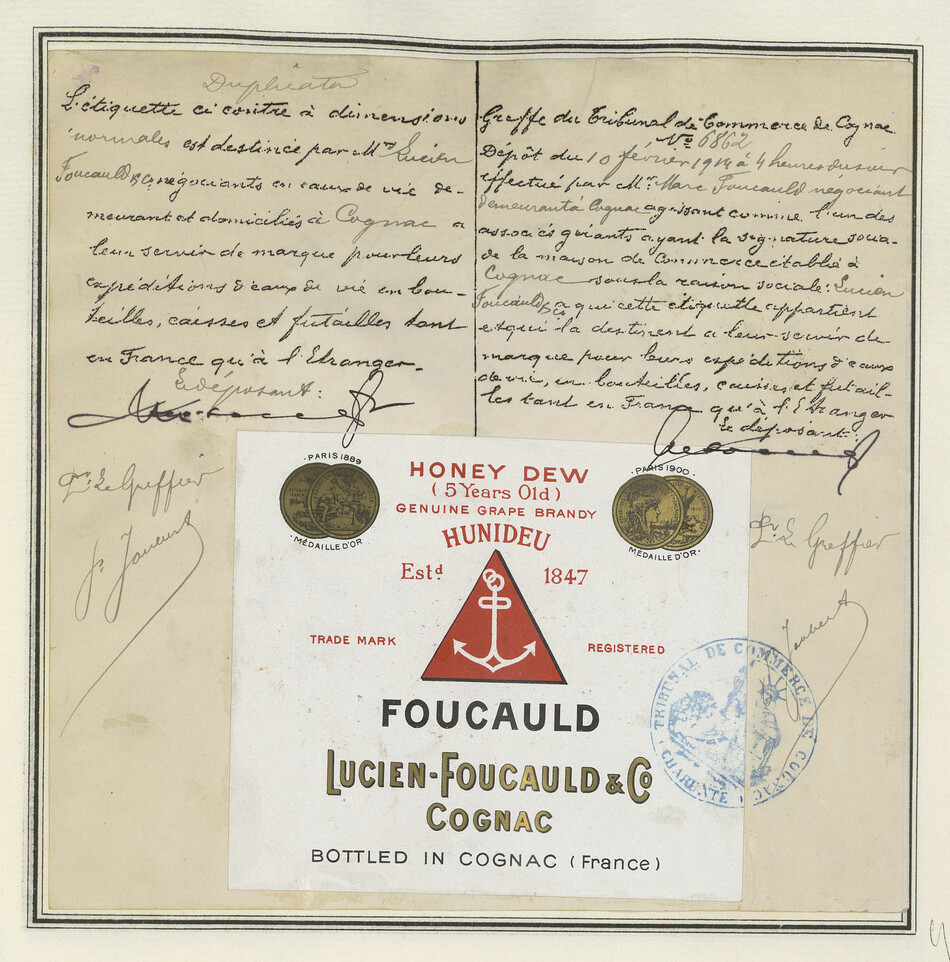 Duplicata
L'étiquette ci contre à dimensions
normales est destinée par Mrs Lucien
Foucauld & Co négociants en eaux de vie de-
meurant et domiciliés à Cognac a
leur servir de marque pour leurs
expéditions d'eaux de vie en bou-
teilles, caisses et futailles tant
en France qu'à l'Etranger.
Le déposant:
Pr Le Greffier
Greffe du Tribunal de Commerce de Cognac
No 6862
Dépôt du 10 février 1914 à 4 heures du soir
effectué par Mr. Marc Foucauld négociant
demeurant à Cognac agissant comme l'un des
associés gérants ayant la signature socia-
de la maison de Commerce établie à
Cognac sous la raison sociale: Lucien
Foucauld & Co a qui cette étiquette appartient
et qui la destinent a leur servir de
marque pour leurs expéditions d'eaux
de vie, en bouteilles, caisses et futail-
les tant en France qu'à l'Etranger
Le déposant:
Pr Le Greffier
Joubert
·PARIS 1889
·MÉDAILLE D'OR·
HONEY DEW
(5 Years Old)
GENUINE GRAPE BRANDY
HUNIDEU
·PARIS 1900·
MÉDAILLE D'OR·
Estd 1847
TRADE MARK REGISTERED
FOUCAULD
LUCIEN-FOUCAULD & Co
COGNAC
BOTTLED IN COGNAC (France)
TRIBUNAL DE COMMERCE DE COGNAC
CHARENTE